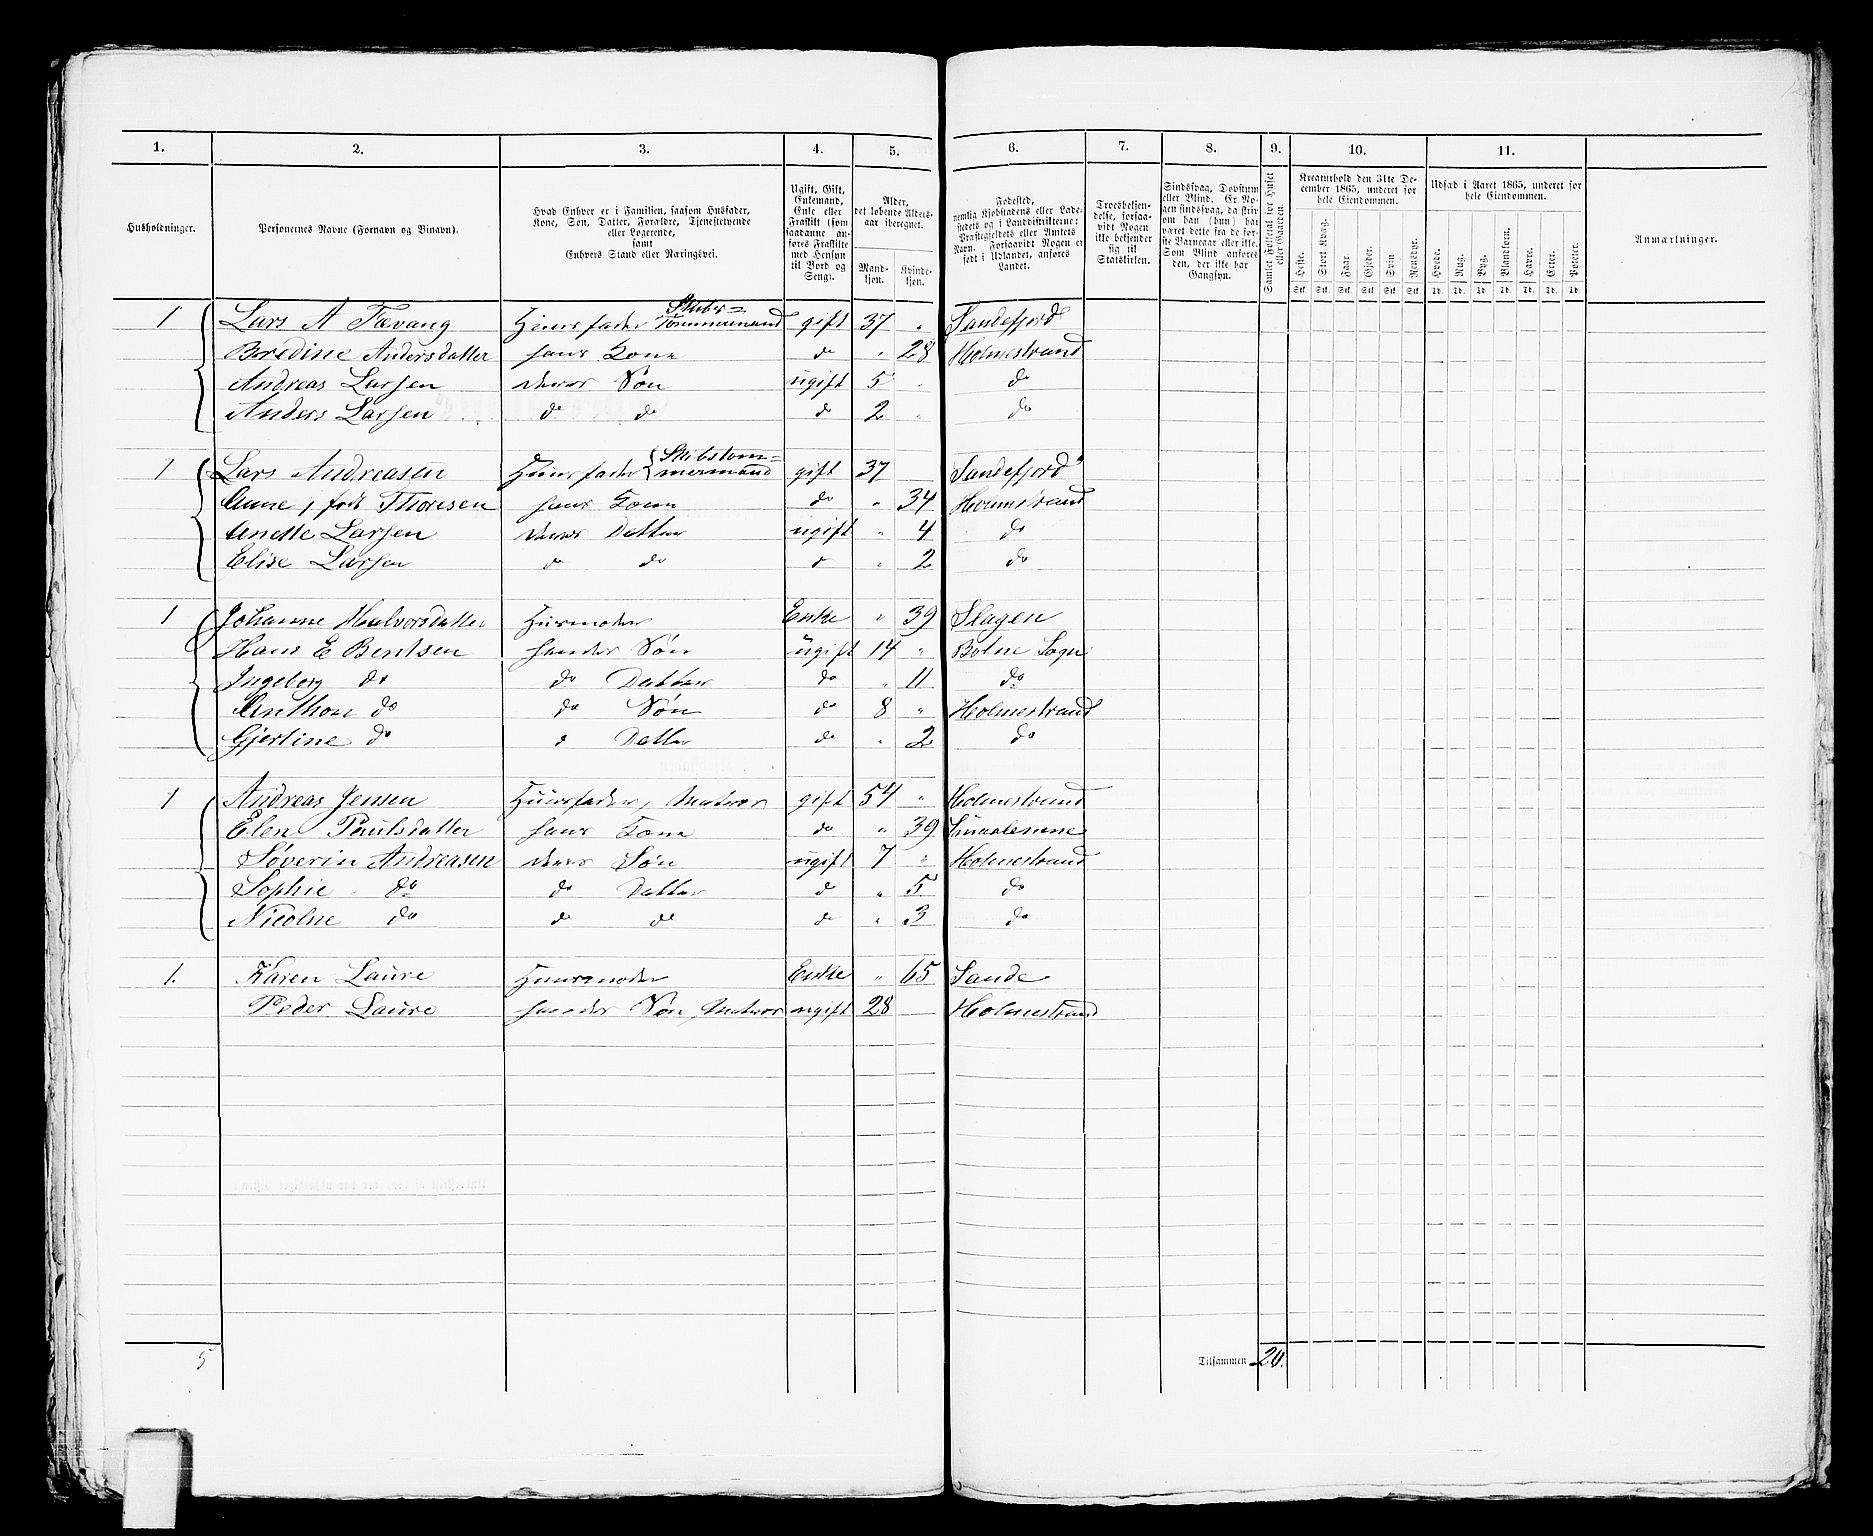 1. 2. 3. 4. 5. 6. 7. 8. 9. 10. 11.
Husholdninger.
Personernes Navne (Fornavn og Tilnavn).
Hvad Enhver er i Familien, saasom Husfader, Kone, Søn, Datter, Forældre, Tjenestetyende eller Logerende, samt Enhvers Stand eller Næringsvei.
Ugift, Gift, Enkemand, Enke eller Fraskilt (som saadanne anføres Fraskilte med Hensyn til Bord og Seng).
Alder, det løbende Aldersaar iberegnet.
Mandkjøn. Kvindekjøn.
Fødested, nemlig Kjøbstadens eller Ladestedets og i Landdistrikterne: Præstegjeldets eller Amtets Navn. Forsaavidt Nogen er født i Udlandet, anføres Landet.
Troesbekjendelse, forsaavidt Nogen ikke bekjender sig til Statskirken.
Sindssvag, Døvstum eller Blind. Er Nogen sindssvag, da skriv om han (hun) har været dette fra de første Barneaar eller ikke. Som Blind anføres den, der ikke har Gangsyn.
Samlet Folketal for Huset eller Gaarden.
Kreaturhold den 31te December 1865, underet for hele Eiendommen.
Heste. Stort Kvæg. Faar. Gjeder. Svin. Rensdyr.
Stk. Stk. Stk. Stk. Stk. Stk.
Udsæd i Aaret 1865, underet for hele Eiendommen.
Hvede. Rug. Byg. Blandkorn. Havre. Erter. Poteter.
Td. Td. Td. Td. Td. Td. Td.
Anmærkninger.
1 Lars A Fævang Huusfader Skibs=Tømmermand gift 37 " Sandefjord
Beredine Andersdatter hans Kone do " 28 Holmestrand
Andreas Larsen deres Søn ugift 5 " do
Anders Larsen do do do 2 " do
1 Lars Andreasen Huusfader Skibstømmermand gift 37 Sandefjord
Anne, født Thoresen hans Kone do " 34 Holmestrand
Anette Larsen deres Datter ugift " 4 do
Elise Larsen do do d " 2 do
1 Johanne Halvorsdatter Husmoder Enke " 39 Slagen
Hans E Bentsen hendes Søn ugift 14 " Botne Sogn
Ingeborg do do Datter do " 11 do
Anthon do do Søn do 8 " Holmestrand
Gjertine do d Datter do " 2 do
1 Andreas Jensen Huusfader, Matros gift 54 " Holmestrand
Elen Paulsdatter hans Kone do " 39 Smaalenene
Søverin Andreasen deres Søn ugift 7 " Holmestrand
Sophie do do Datter d " 5 do
Nicoline do do do do " 3 do
1. Karen Laure Huusmoder Enke " 65 Sande
Peder Laure hendes Søn, Matros ugift 28 Holmestrand
5 Tilsammen 20.